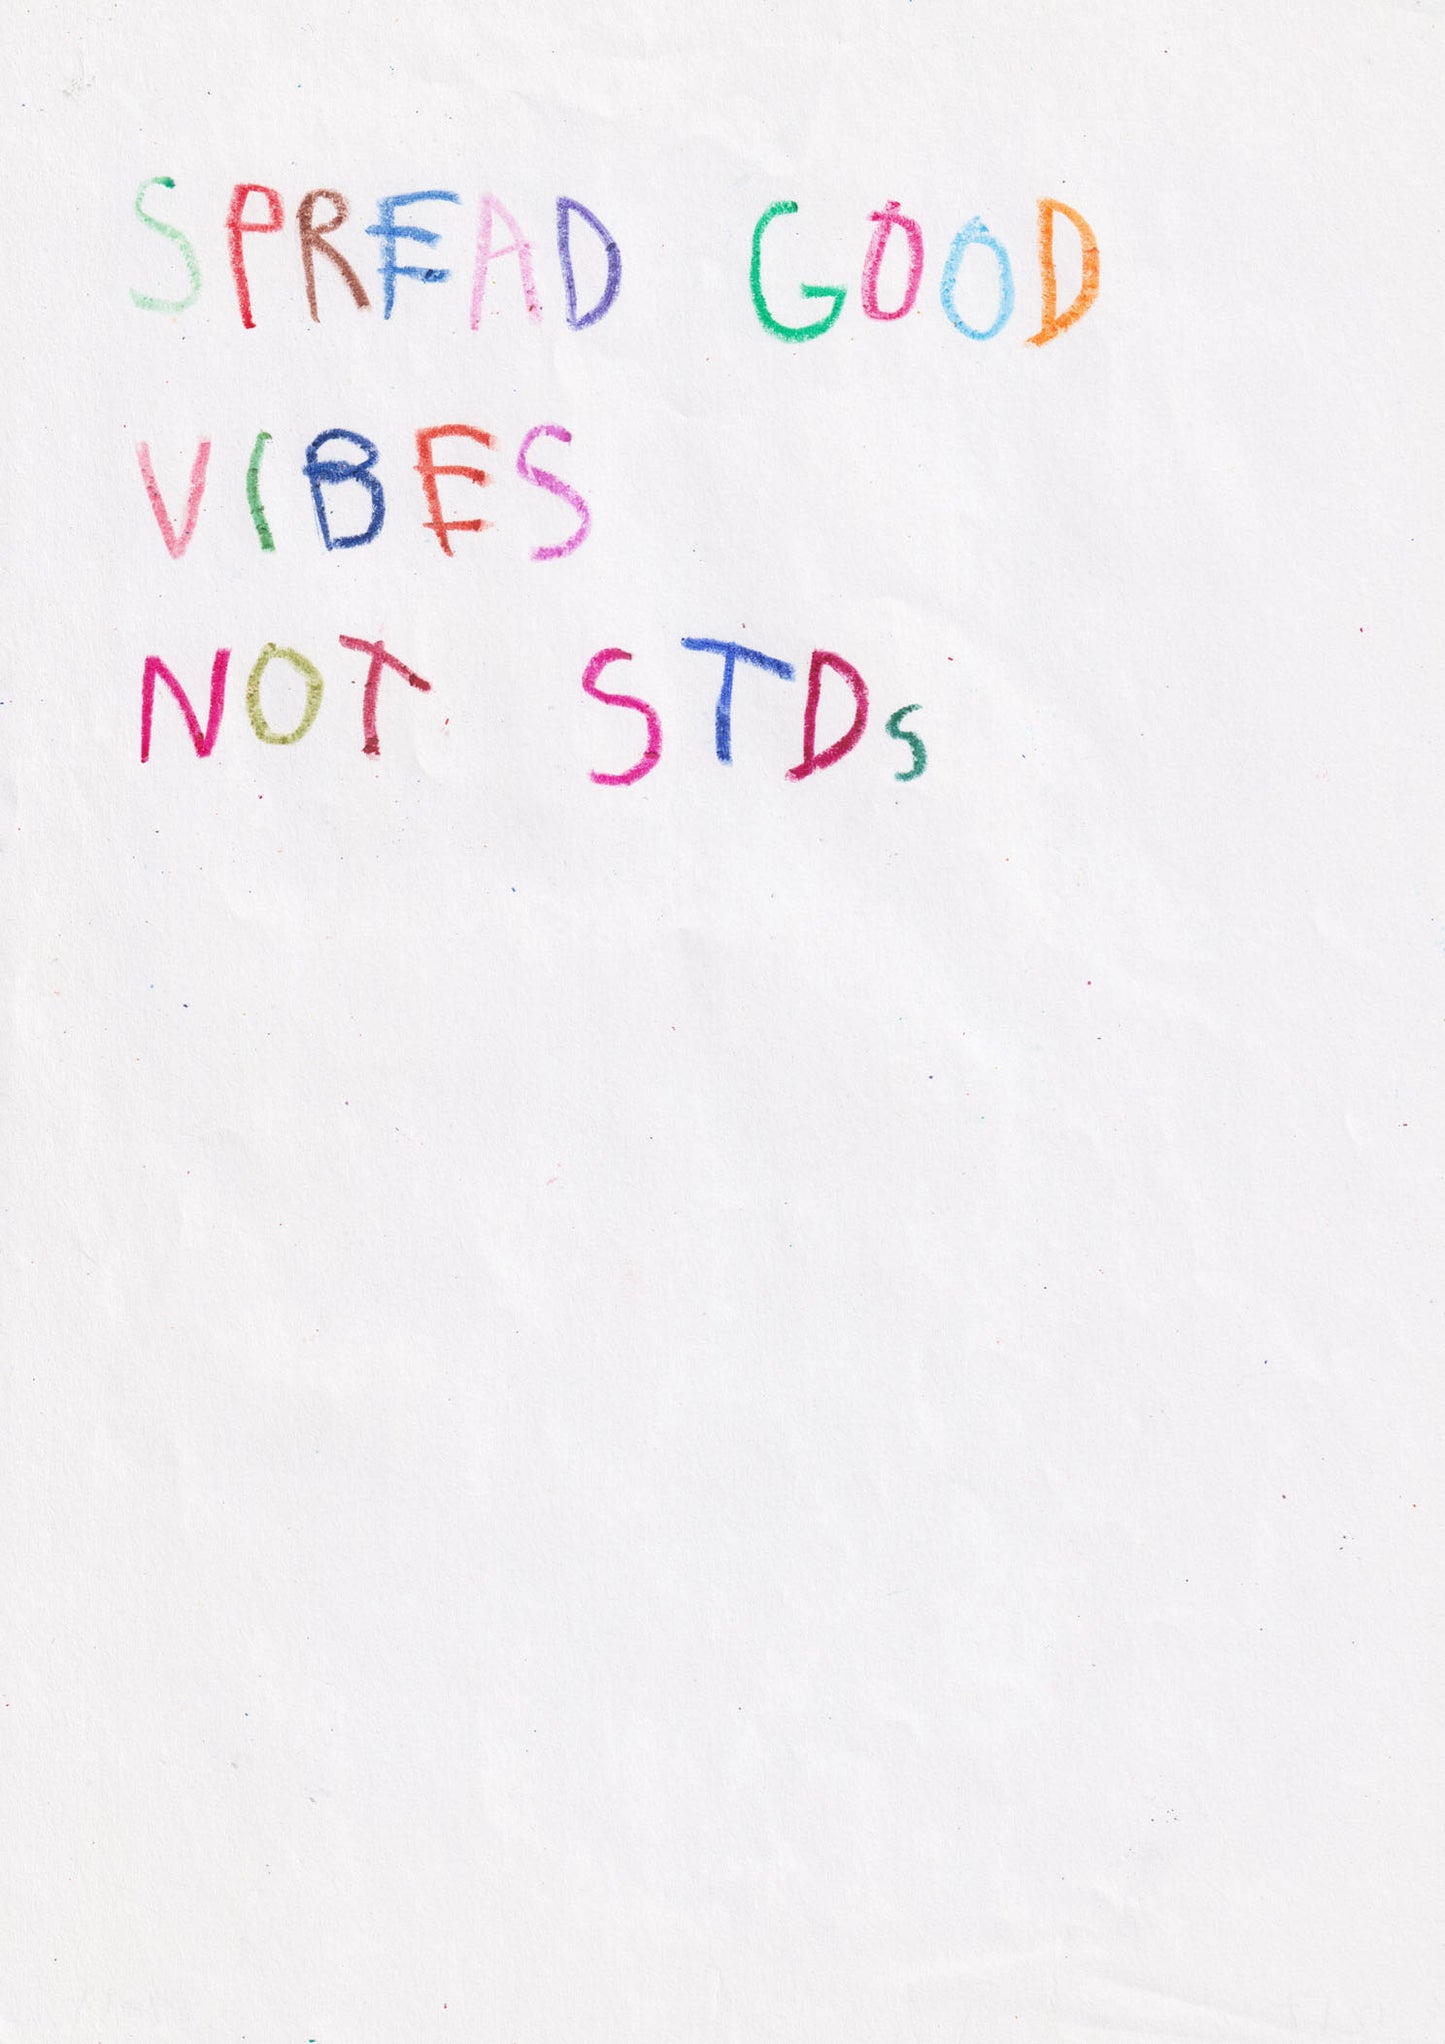 SPREAD GOOD
VIBES
NOT STDs